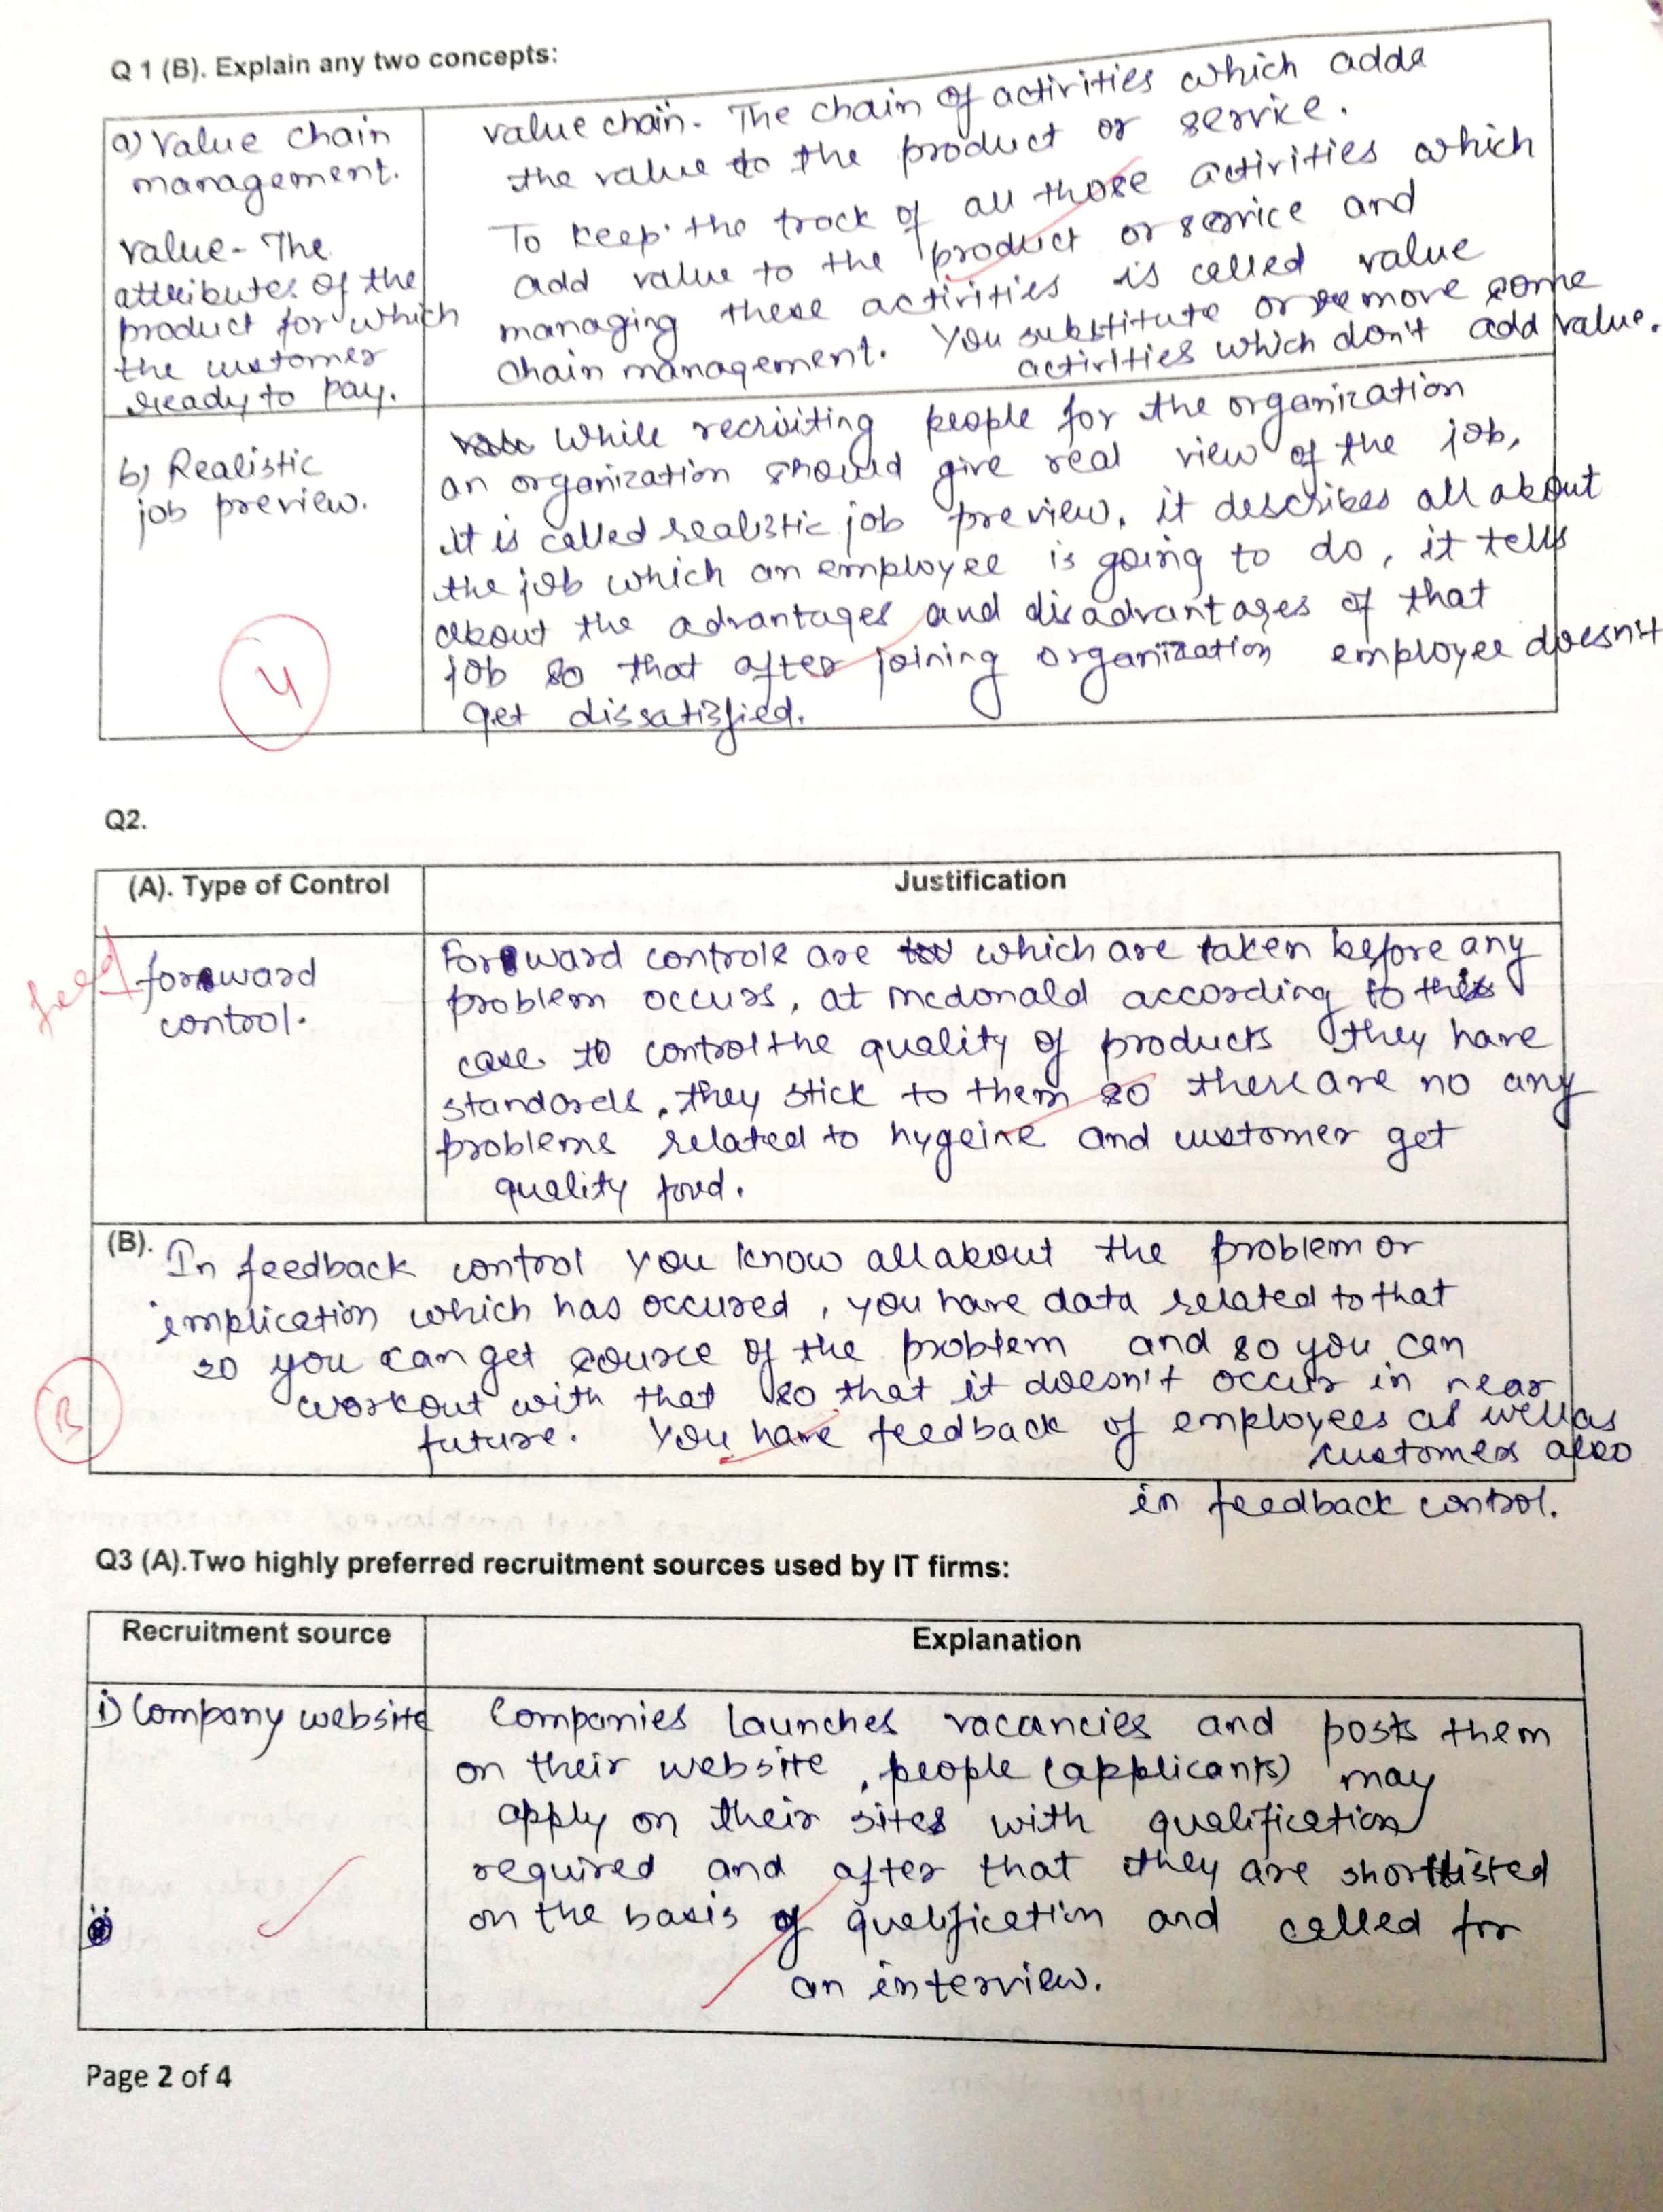 Q 1 (B). Explain any two concepts:
a) Value chain
management.
value - The
attributes of the
product for which
the customer
ready to pay.
value chain - The chain of activities which adds
the value to the product or service.
To keep the track of all those activities which
add value to the product or service and
managing these activities is called value
chain management. You substitute or remove some
activities which don't add value.
b) Realistic
job preview.
4
While recruiting people for the organization
an organization should give real view of the job,
it is called realistic job preview, it describes all about
the job which an employee is going to do, it tells
about the advantages and disadvantages of that
job so that after joining organization employee doesn't
get dissatisfied.
Q2.
(A). Type of Control
Justification
feed
forward
control.
Forward controls are which are taken before any
problem occurs, at mcdonald according to this
case to control the quality of products they have
standards, they stick to them so there are no any
problems related to hygeine and customer get
quality food.
(B).
In feedback control you know all about the problem or
implication which has occured, you have data related to that
so you can get source of the problem and so you can
workout with that so that it doesn't occur in near
future. You have feedback of employees as well as
customers also
in feedback control.
Q3 (A).Two highly preferred recruitment sources used by IT firms:
Recruitment source
Explanation
i) Company website
Companies launches vacancies and posts them
on their website, people (applicants) may
apply on their sites with qualification
required and after that they are shortlisted
on the basis of qualification and called for
an interview.
Page 2 of 4